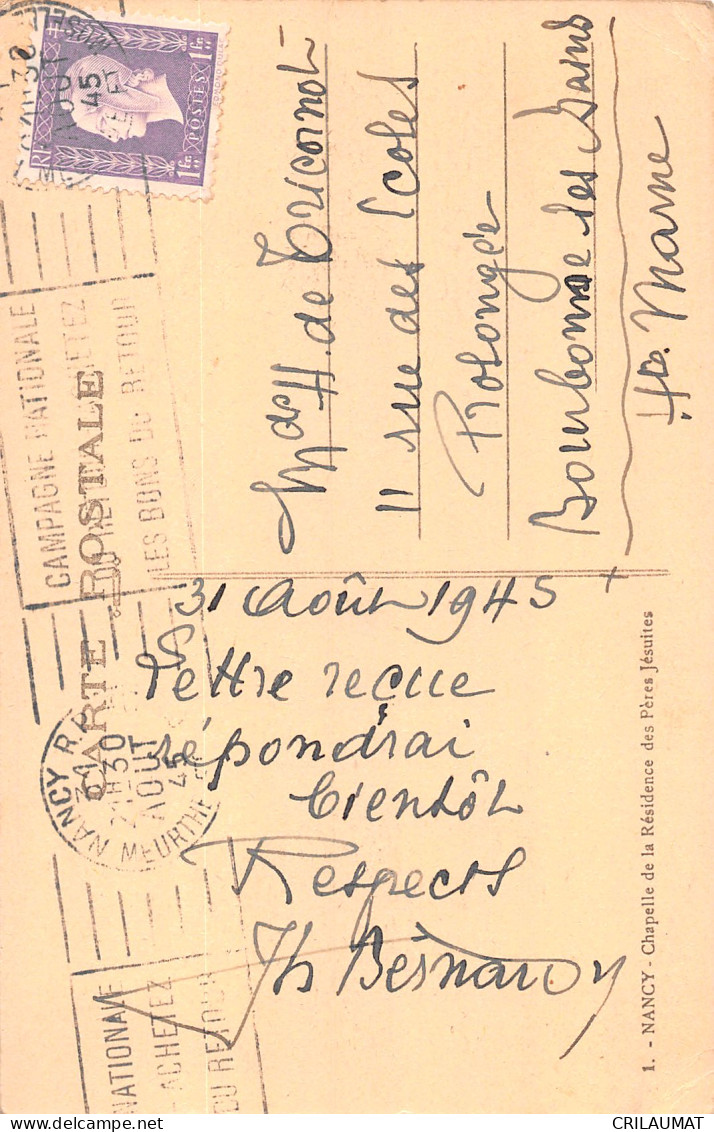 CARTE POSTALE
RF
POSTES
1fr
1fr
NANCY R.P.
21H30
31
AOUT
45
MEURTHE
CAMPAGNE NATIONALE
ACHETEZ
LES BONS DU RETOUR
NATIONALE
ACHETEZ
DU RETOUR
31 Août 1945
Lettre reçue
répondrai
bientôt
Respects
Th Bésnardy
Mde H. de Tricornot
11 rue des Ecoles
Prolongée
Bourbonne les Bains
Hte. Marne
1. - NANCY - Chapelle de la Résidence des Pères Jésuites
CRILAUMAT